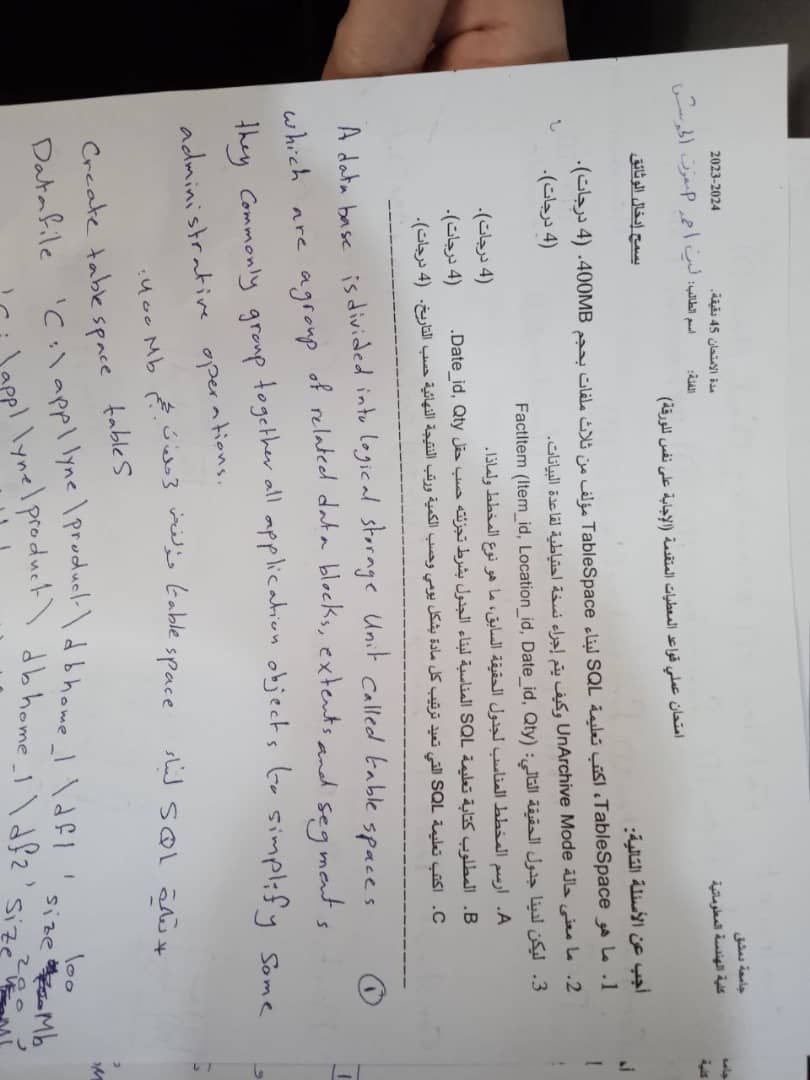 جامعة دمشق
كلية الهندسة المعلوماتية
مدة الامتحان 45 دقيقة. 2023-2024
الفئة: اسم الطالب: ليث احمد صفوت
امتحان عملي قواعد المعطيات المتقدمة (الإجابة على نفس للورقة)
أجب عن الأسئلة التالية: يسمح إدخال الوثائق
1. ما هو TableSpace، اكتب تعليمة SQL لبناء TableSpace مؤلف من ثلاث ملفات بحجم 400MB. (4 درجات).
2. ما معنى حالة UnArchive Mode وكيف يتم إجراء نسخة احتياطية لقاعدة البيانات. (4 درجات).
3. ليكن لدينا جدول الحقيقة التالي: FactItem (Item_id, Location_id, Date_id, Qty)
A. ارسم المخطط المناسب لجدول الحقيقة السابق، ما هو نوع المخطط ولماذا. (4 درجات).
B. المطلوب كتابة تعليمة SQL المناسبة لبناء الجدول بشرط تجزئته حسب حقل Date_id, Qty. (4 درجات).
C. اكتب تعليمة SQL التي تعيد ترتيب كل مادة بشكل يومي وحسب الكمية ورتب النتيجة النهائية حسب التاريخ. (4 درجات).
A data base is divided into logical storage Unit called table spaces ①
which are a group of related data blocks, extents and segments
they commonly group together all application objects to simplify some
administrative operations.
* تعليمة SQL لبناء table space مؤلف من 3 ملفات بحجم 400 Mb:
Create table space tables
Datafile 'C:\app\lyne\product\dbhome_1\df1' size 100 Mb,
'C:\app\lyne\product\dbhome_1\df2' size 200 Mb